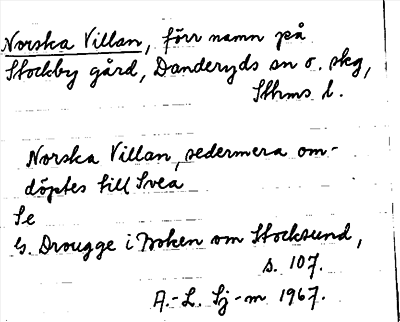 Norska Villan, förr namn på
Stockby gård, Danderyds sn o. skg,
Sthms l.
Norska Villan, sedermera om-
döptes till Svea
Se
G. Drougge i Boken om Stocksund,
s. 107.
A.-L. Sj-m 1967.